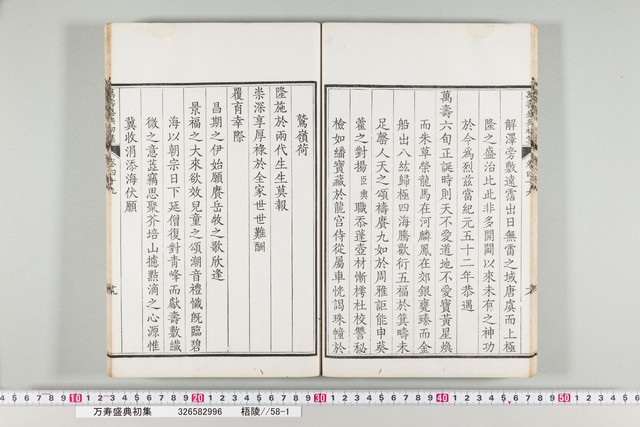 解澤旁敷遠霑出日無雷之域唐虞而上極
隆之盛治比此非多開闢以來未有之神功
於今為烈茲當紀元五十二年恭遇
萬壽六旬正誕時則天不愛道地不愛寶黃星煥
而朱草榮龍馬在河麟鳳在郊銀甕臻而金
船出八紘歸極四海騰歡衍五福於箕疇未
足罄人天之頌禱賡九如於周雅詎能申葵
藿之對揚臣與職忝蓬壺材慚樗杜校讐秘
檢如繙寶藏於龍宮侍從屬車恍謁珠幢於
鷲嶺荷
隆施於兩代生生莫報
崇深享厚祿於全家世世難酬
覆育幸際
昌期之伊始願賡岳牧之歌欣逢
景福之大來欲效兒童之頌潮音禮懺既臨碧
海以朝宗日下延僧復對青峰而獻壽敷纖
微之意蕋竊思聚芥培山攄點滴之心源惟
冀收涓添海伏願
万寿盛典初集 326582996 梧陵//58-1
10 20 30 40 50